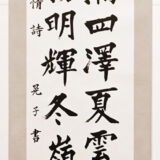 滿四澤夏雲
揚明輝冬嶺
情詩 晃子書